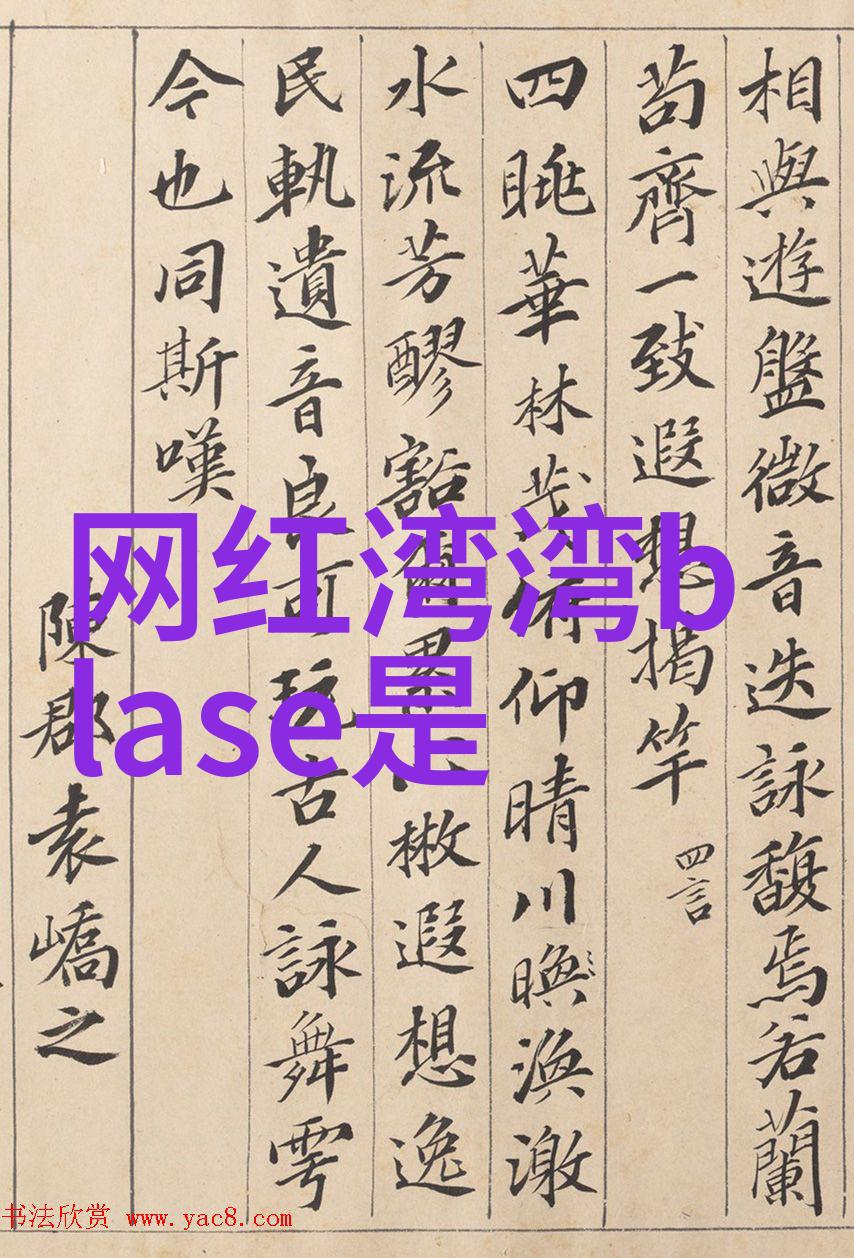 相與遊盤微音迭詠馥焉若蘭
苟齊一致遐想揭竿 四言
四眺華林茂俯仰晴川㬇渙激
水流芳醪豁爾累心遐想逸
民軌遺音良可玩古人詠舞雩
今也同斯嘆
陳郡袁嶠之
网红湾湾b
lase是
书法欣赏 www.yac8.com